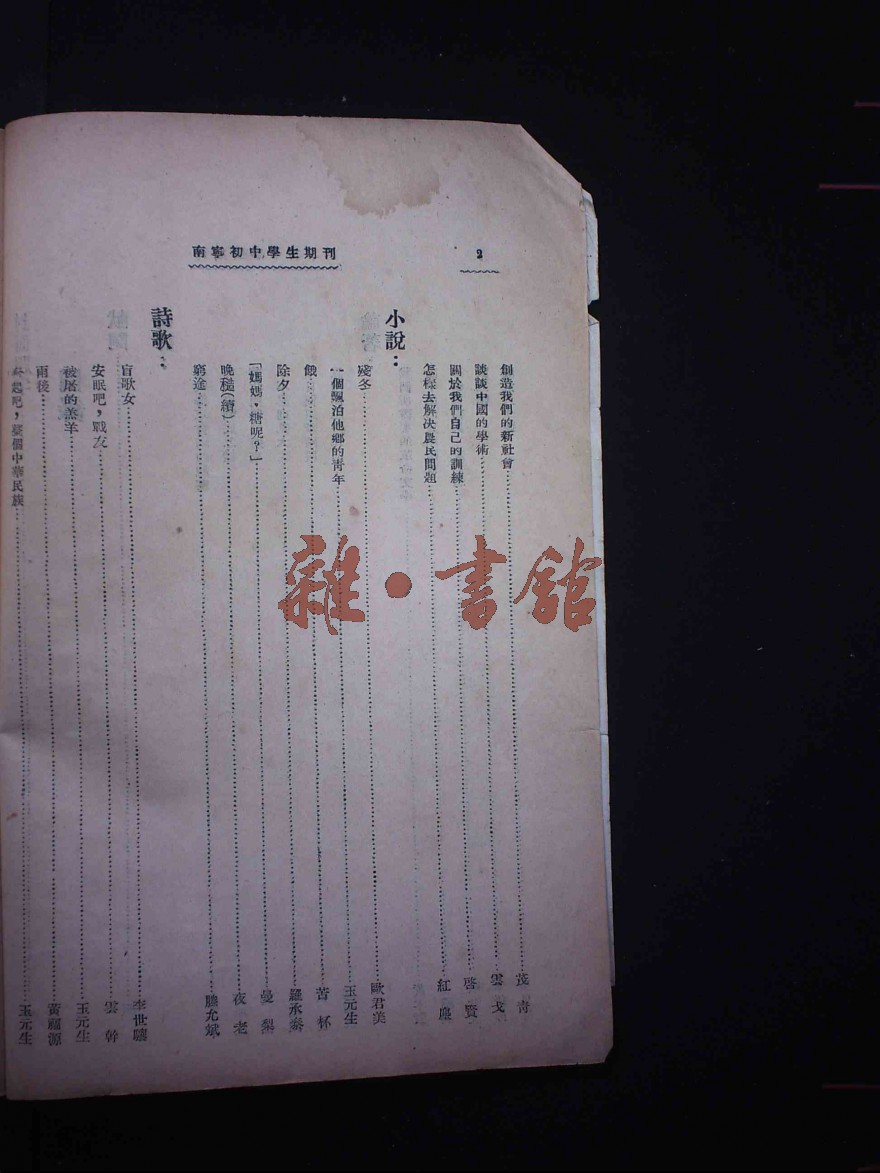 南寧初中學生期刊
2
創造我們的新社會 茂青
談談中國的學術 雲戈
關於我們自己的訓練 啓賢
怎樣去解決農民問題 紅塵
小說：
殘冬 歐君美
一個飄泊他鄉的青年 玉元生
餓 苦杯
除夕 羅承泰
「媽媽、糖呢？」 曼梨
晚糙(續) 夜老
窮途 滕允斌
詩歌：
盲歌女 李世驤
安眠吧，戰友 雲幹
被屠的羔羊 玉元生
雨後 黃福源
起吧，整個中華民族 玉元生
雜·書館